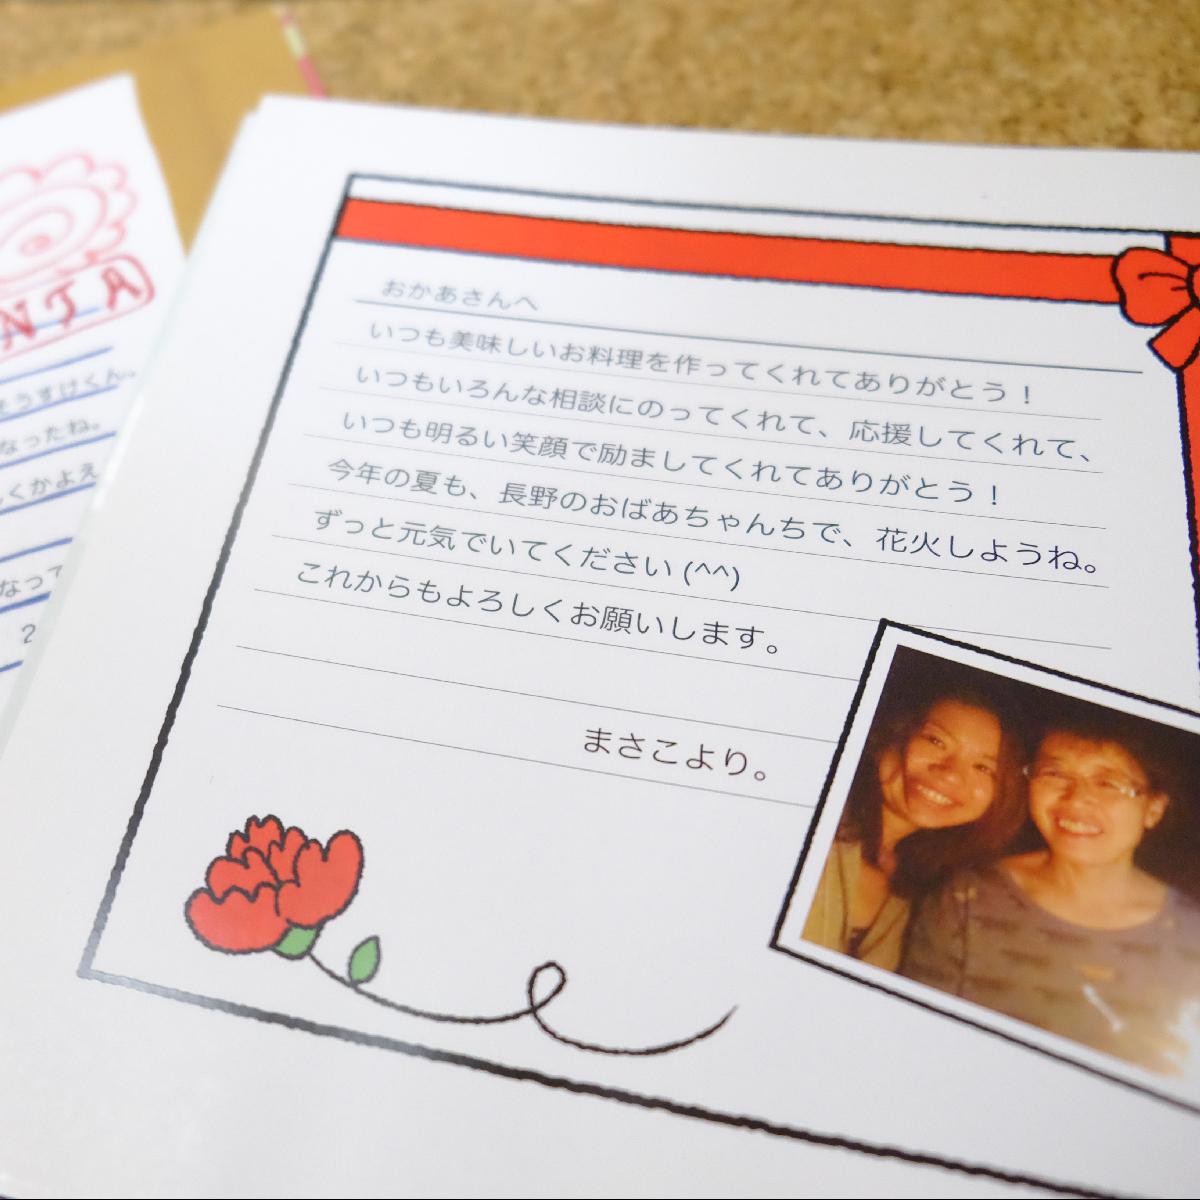 NJA
うすけくん。
なったね。
くかよえ
なって
2
おかあさんへ
いつも美味しいお料理を作ってくれてありがとう！
いつもいろんな相談にのってくれて、応援してくれて、
いつも明るい笑顔で励ましてくれてありがとう！
今年の夏も、長野のおばあちゃんちで、花火しようね。
ずっと元気でいてください(^^)
これからもよろしくお願いします。
まさこより。